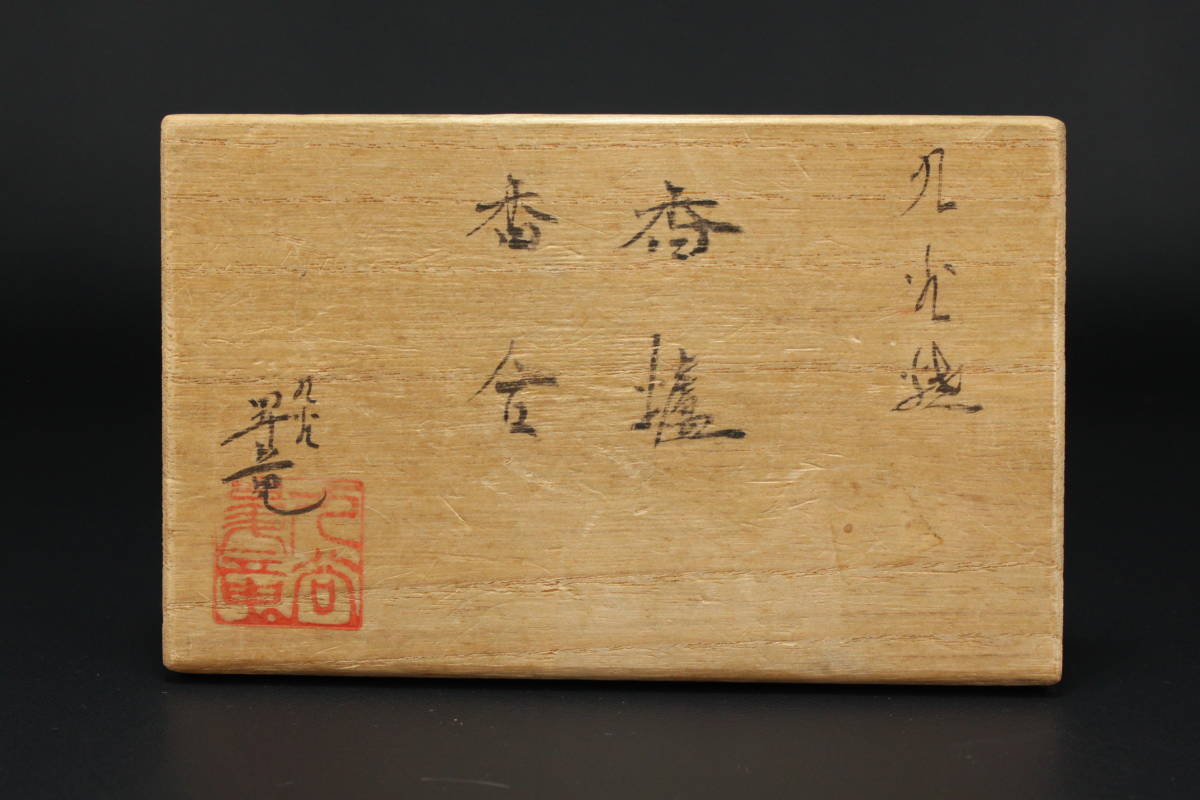 九谷焼
香爐
香合
九谷
昇竜
九谷